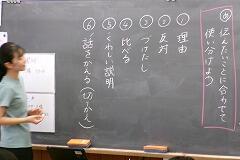 め 伝えたいことに合わせて
使い分けよう
① 理由
② 反対
③ つけたし
④ 比べる
⑤ くわしい説明
⑥ 話をかえる(てんかん)